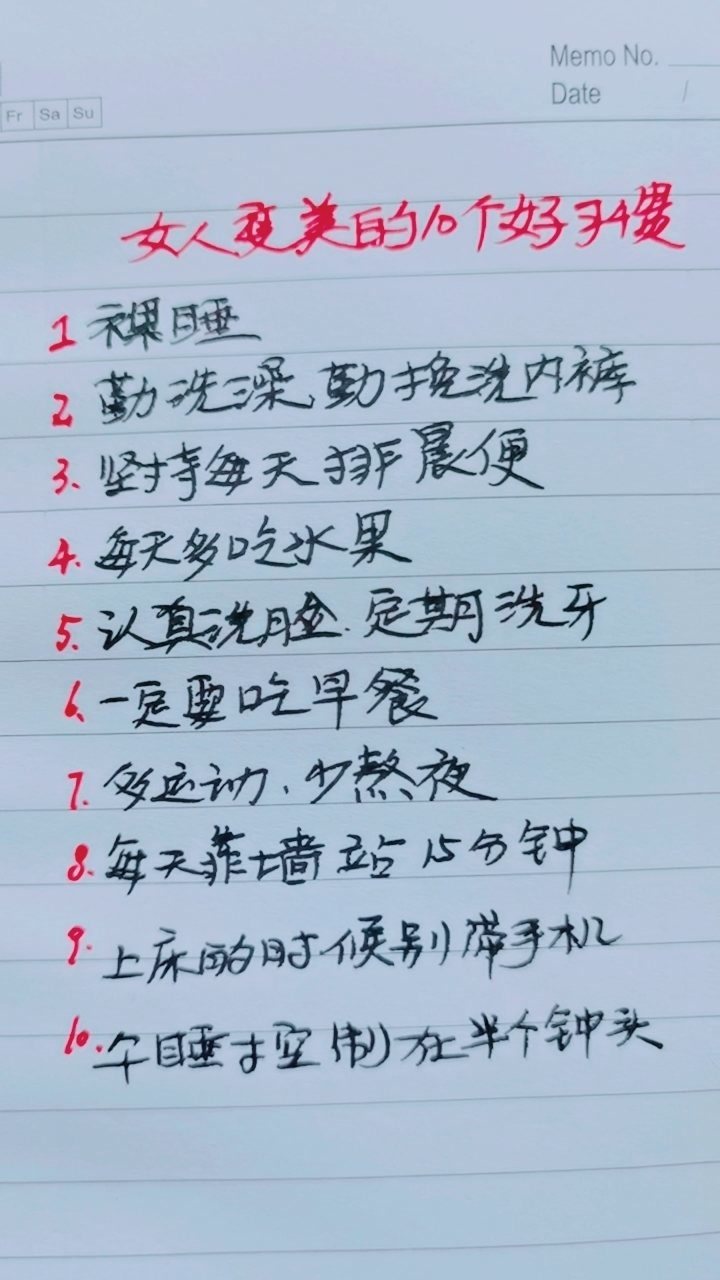 Memo No.
Date /
Fr Sa Su
女人变美的10个好习惯
1 裸睡
2 勤洗澡,勤换洗内裤
3. 坚持每天排晨便
4. 每天多吃水果
5. 认真洗脸.定期洗牙
6、一定要吃早餐
7. 多运动、少熬夜
8. 每天靠墙站15分钟
9. 上床的时候别带手机
10. 午睡控制在半个钟头